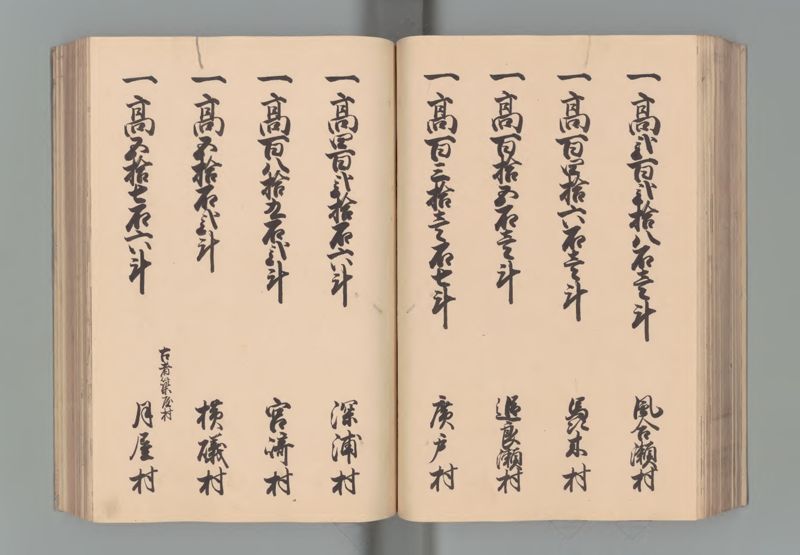 一高弐百弐拾八石壱斗 風合瀬村
一高百四拾六石壱斗 驫木村
一高百拾五石壱斗 追良瀬村
一高百三拾壱石七斗 廣戸村
一高四百弐拾石六斗 深浦村
一高百八拾五石弐斗 宮崎村
一高五拾石弐斗 横礒村
古者築屋村
一高五拾七石六斗 月屋村